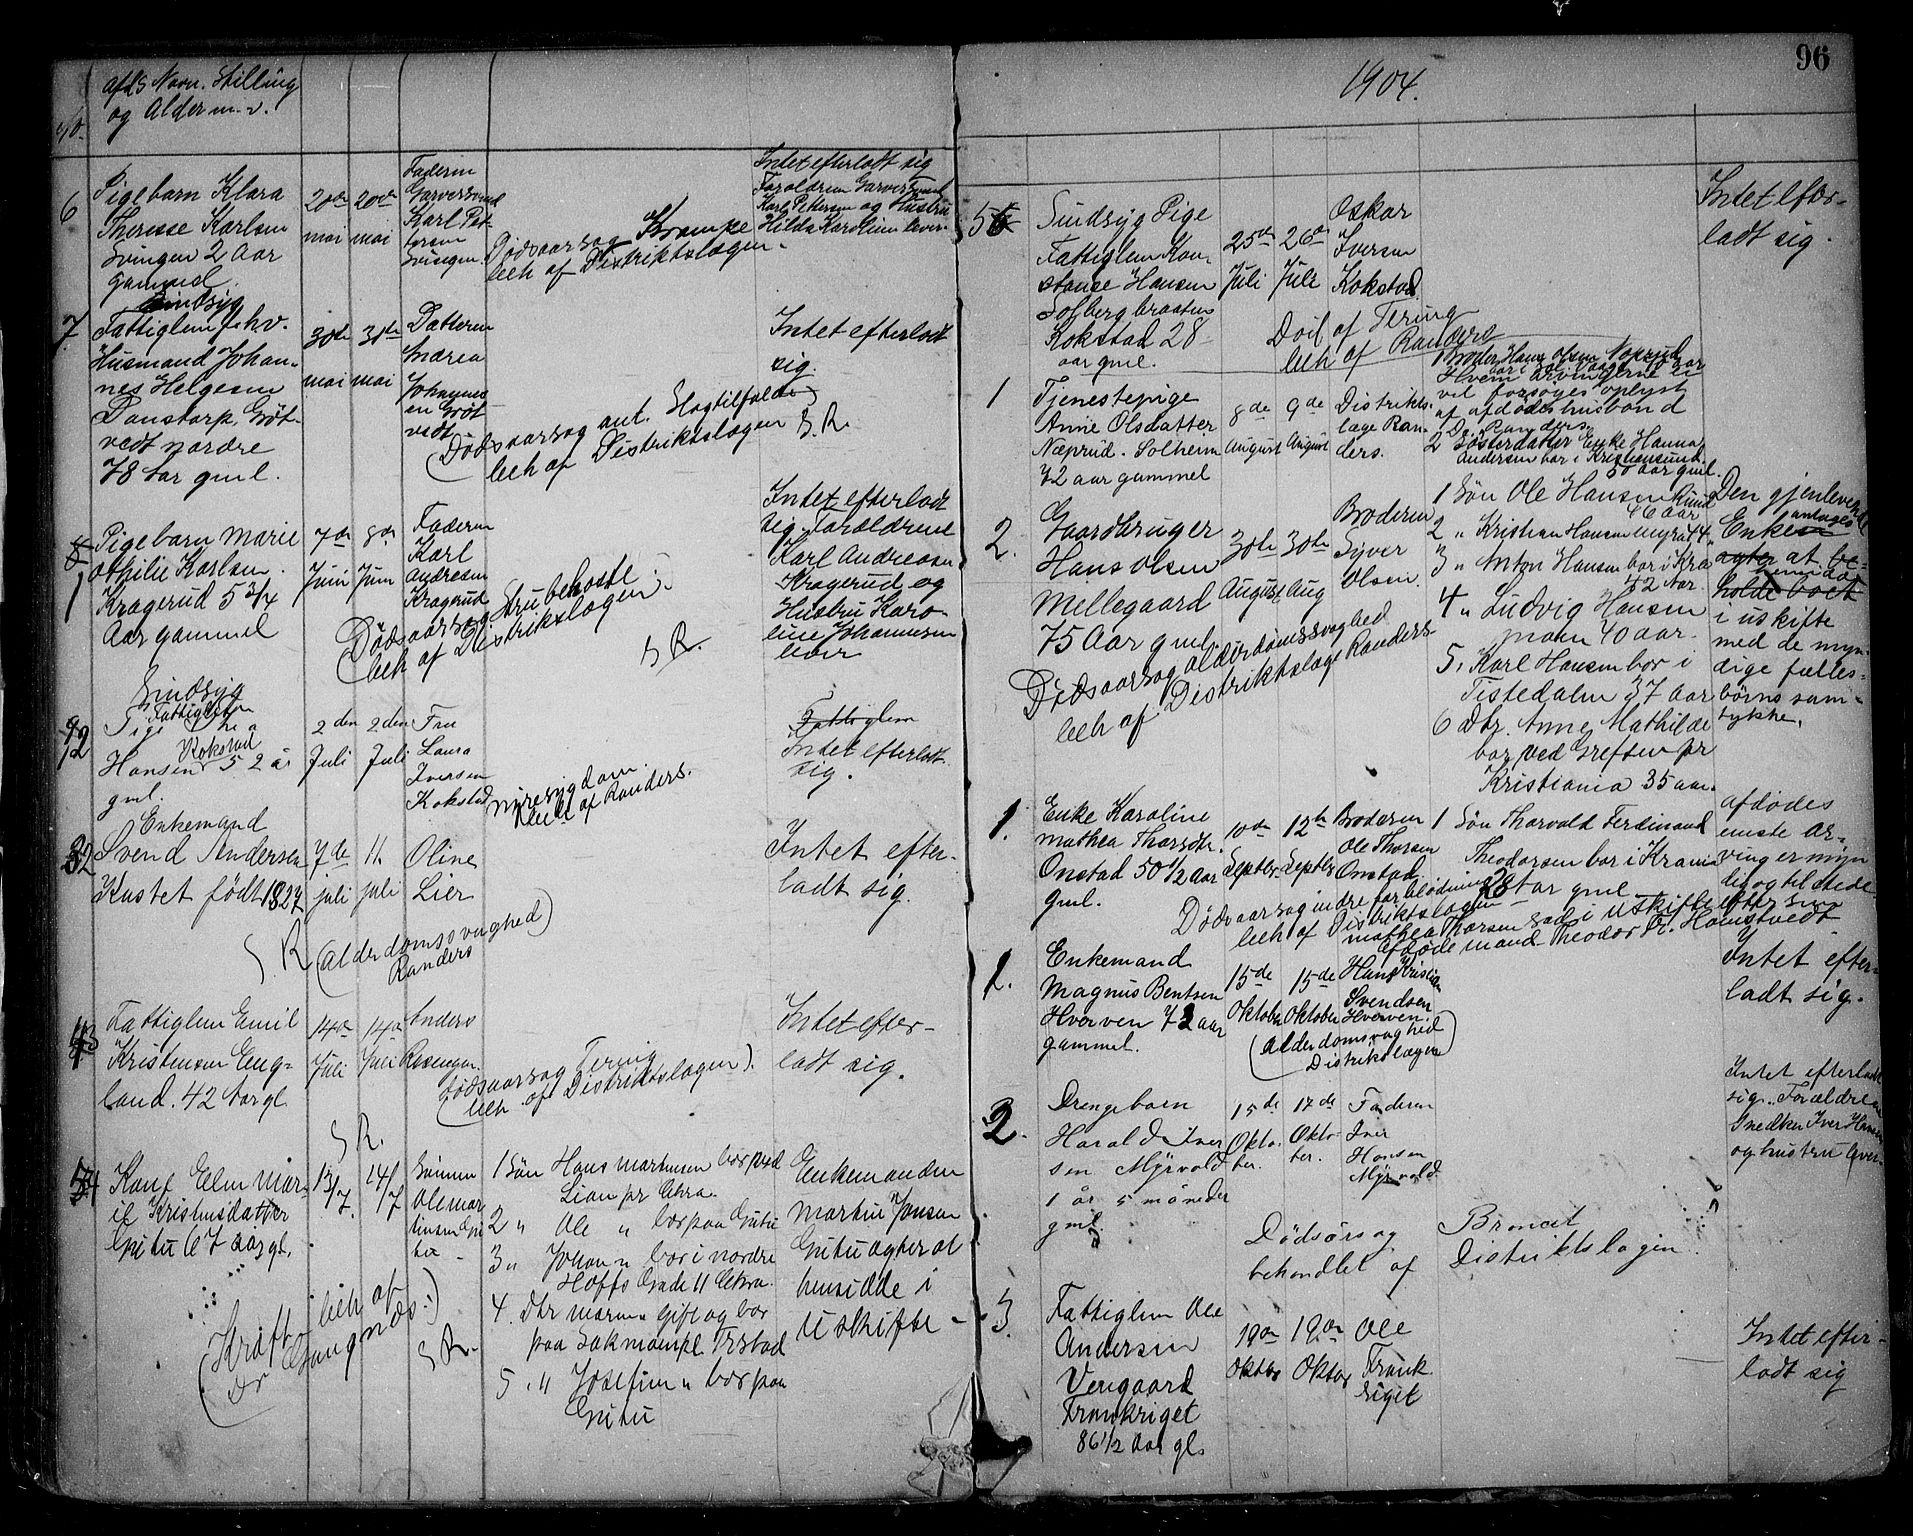 afds Navn. Stilling
og Alder m.v.
No.
6
Pigebarn Klara
Therese Karlsen
Svingen 2 Aar
gammel.
20de
mai
20de
mai
Faderen
Garversvend
Karl Pet-
tersen
Svingen
Dødsaarsag Krampe
beh af Distriktslægen.
Intet efterladt sig
Forældrene Garversvend
Karl Pettersen og Hustru
Hilda Karoline lever.
7
Sindsyg
Fattiglem fhv.
Husmand Johan-
nes Helgesen
Danstorp, Grøt-
vedt nordre
78 Aar gml.
30te
mai
31te
mai
Datteren
Andrea
Johannes-
en Grøt
vedt
(Dødsaarsag ant. Slagtilfælde)
beh af Distriktslægen
S. R.
Intet efterladt
sig.
8
1
Pigebarn Marie
Othilie Karlsen.
Kragerud 5 3/4
Aar gammel
7de
Juni
8de
Juni
Faderen
Karl
Andresen
Kragerud
(Dødsaarsag Strubehoste
beh af Distriktslægen.
S R.
Intet efterladt
sig. Forældrene
Karl Andreasen
Kragerud og
Hustru Karo-
line Johannesen
lever
9
2
Sindsyg
Fattiglem
Pige Thea
Kokstad
Hansen 52 år
gml.
2den
Juli
2den
Juli
Fru
Laura
Iversen
Kokstad
nyresygdom.
Beh af Randers.
Fattiglem
Intet efterladt
sig.
32
Enkemand
Svend Andersen
Kustet født 1827
7de
juli
11.
juli
Oline
Lier
S R (alderdomssvaghed)
Randers
Intet efter-
ladt sig.
43
Fattiglem Emil
Kristensen Eng-
land. 42 Aar gl.
14de
Juli
14de
Juli
Anders
Rosengen.
(Dødsaarsag Tering
beh af Distriktslægen).
S R.
Intet efter-
ladt sig.
54
Kone Elen Mar-
ie Kristensdatter
Gritu 67 aar gl.
13/7.
14/7
Sønnen
Ole Mar
tinsen Gri
tu
1 Søn Hans Martinsen bor ved
Lian pr Chra.
2 " Ole " bor paa Gritu
3 " Johan " bor i nordre
Hoffs Gade 11 Chra.
4. Dtr Maren " Gift og bor
paa Sakmoenpl. Trstad
5 " Josefine " bor paa
Gritu
Enkemanden
Martin Jonsen
Gritu agter at
hensidde i
Uskifte -
(Kræft beh af
Dr Gangnæs.)
S R.
96
1904.
5
Sindsyg Pige
Fattiglem Kon-
stanse Hansen
Solbergbraaten
Kokstad 28
aar gml.
25de
Juli
26de
Juli
Oskar
Iversen
Kokstad
Død af Tering
beh af Randers
Intet efter-
ladt sig.
1
Tjenestepige
Anne Olsdatter
Næprud. Solheim
72 aar gammel
8de
August
9de
August
Distrikts-
læge Ran-
ders.
1 Broder Hans Olsen Næprud
Hvem arvingerne er
ved forsøges oplyst
af afdødes husbond
Dr. Randers
2 Søsterdatter Enke Hanna
Andersen bor i Kristiansund.
50 aar gml.
2.
Gaardbruger
Hans Olsen
Mellegaard
75 Aar gml.
30te
August
30te
Aug
Broderen
Syver
Olsen.
Dødsaarsag alderdomssvaghed
beh af Distriktslæge Randers
1 Søn Ole Hansen Ruud
46 aar
2 " Kristian Hansen Myra 44
3 " Anton Hansen bor i Kra
42 Aar
4 " Ludvig Hansen
Moen 40 aar.
5. Karl Hansen bor i
Tistedalen 37 aar
6 Dtr. Anne Mathilde
bor ved Grefsen pr
Kristiania 35 aar.
Den gjenlevende
Enken antages
agter at be-
holde boet
i uskifte
med de myn-
dige fælles-
børns sam-
tykke.
1.
Enke Karoline
Mathea Thorsdtr.
Onstad 50 1/2 aar
gml.
10de
Septbr.
12te
Septbr
Broderen
Ole Thorsen
Onstad.
1 Søn Thorvald Ferdinand
Theodorsen bor i Krania
28 Aar gml
Dødsaarsag indre forblødning
beh af Distriktslægen
Mathea Thorsen sad i Uskifte efter sin
afdøde mand Theodor Fr. Homstvedt
afdødes
eneste ar-
ving er myn
dig og til stede
1.
Enkemand
Magnus Bentsen
Hverven 72 aar
gammel.
15de
Oktober
15de
Oktober
Hans Kristian
Svendsen
Hverven.
(alderdomssvaghed
Distriktslægen)
Intet efter-
ladt sig.
2.
Drengebarn
Harald Iver
sen Myrvold
1 år 5 måneder
gml.
15de
Okto-
ber.
17de
Okto-
ber.
Faderen
Iver
Hansen
Myrvold
Dødsørsag Broncit
behandlet af Distriktslægen
Intet efterladt
sig. Forældrene
Snedker Iver Hansen
og hustru lever.
3.
Fattiglem Ole
Andersen
Vengaard
Frankriget
86 1/2 Aar gl.
19de
Oktbr
19de
Oktbr
Ole
Frank
riget
Intet efter-
ladt sig